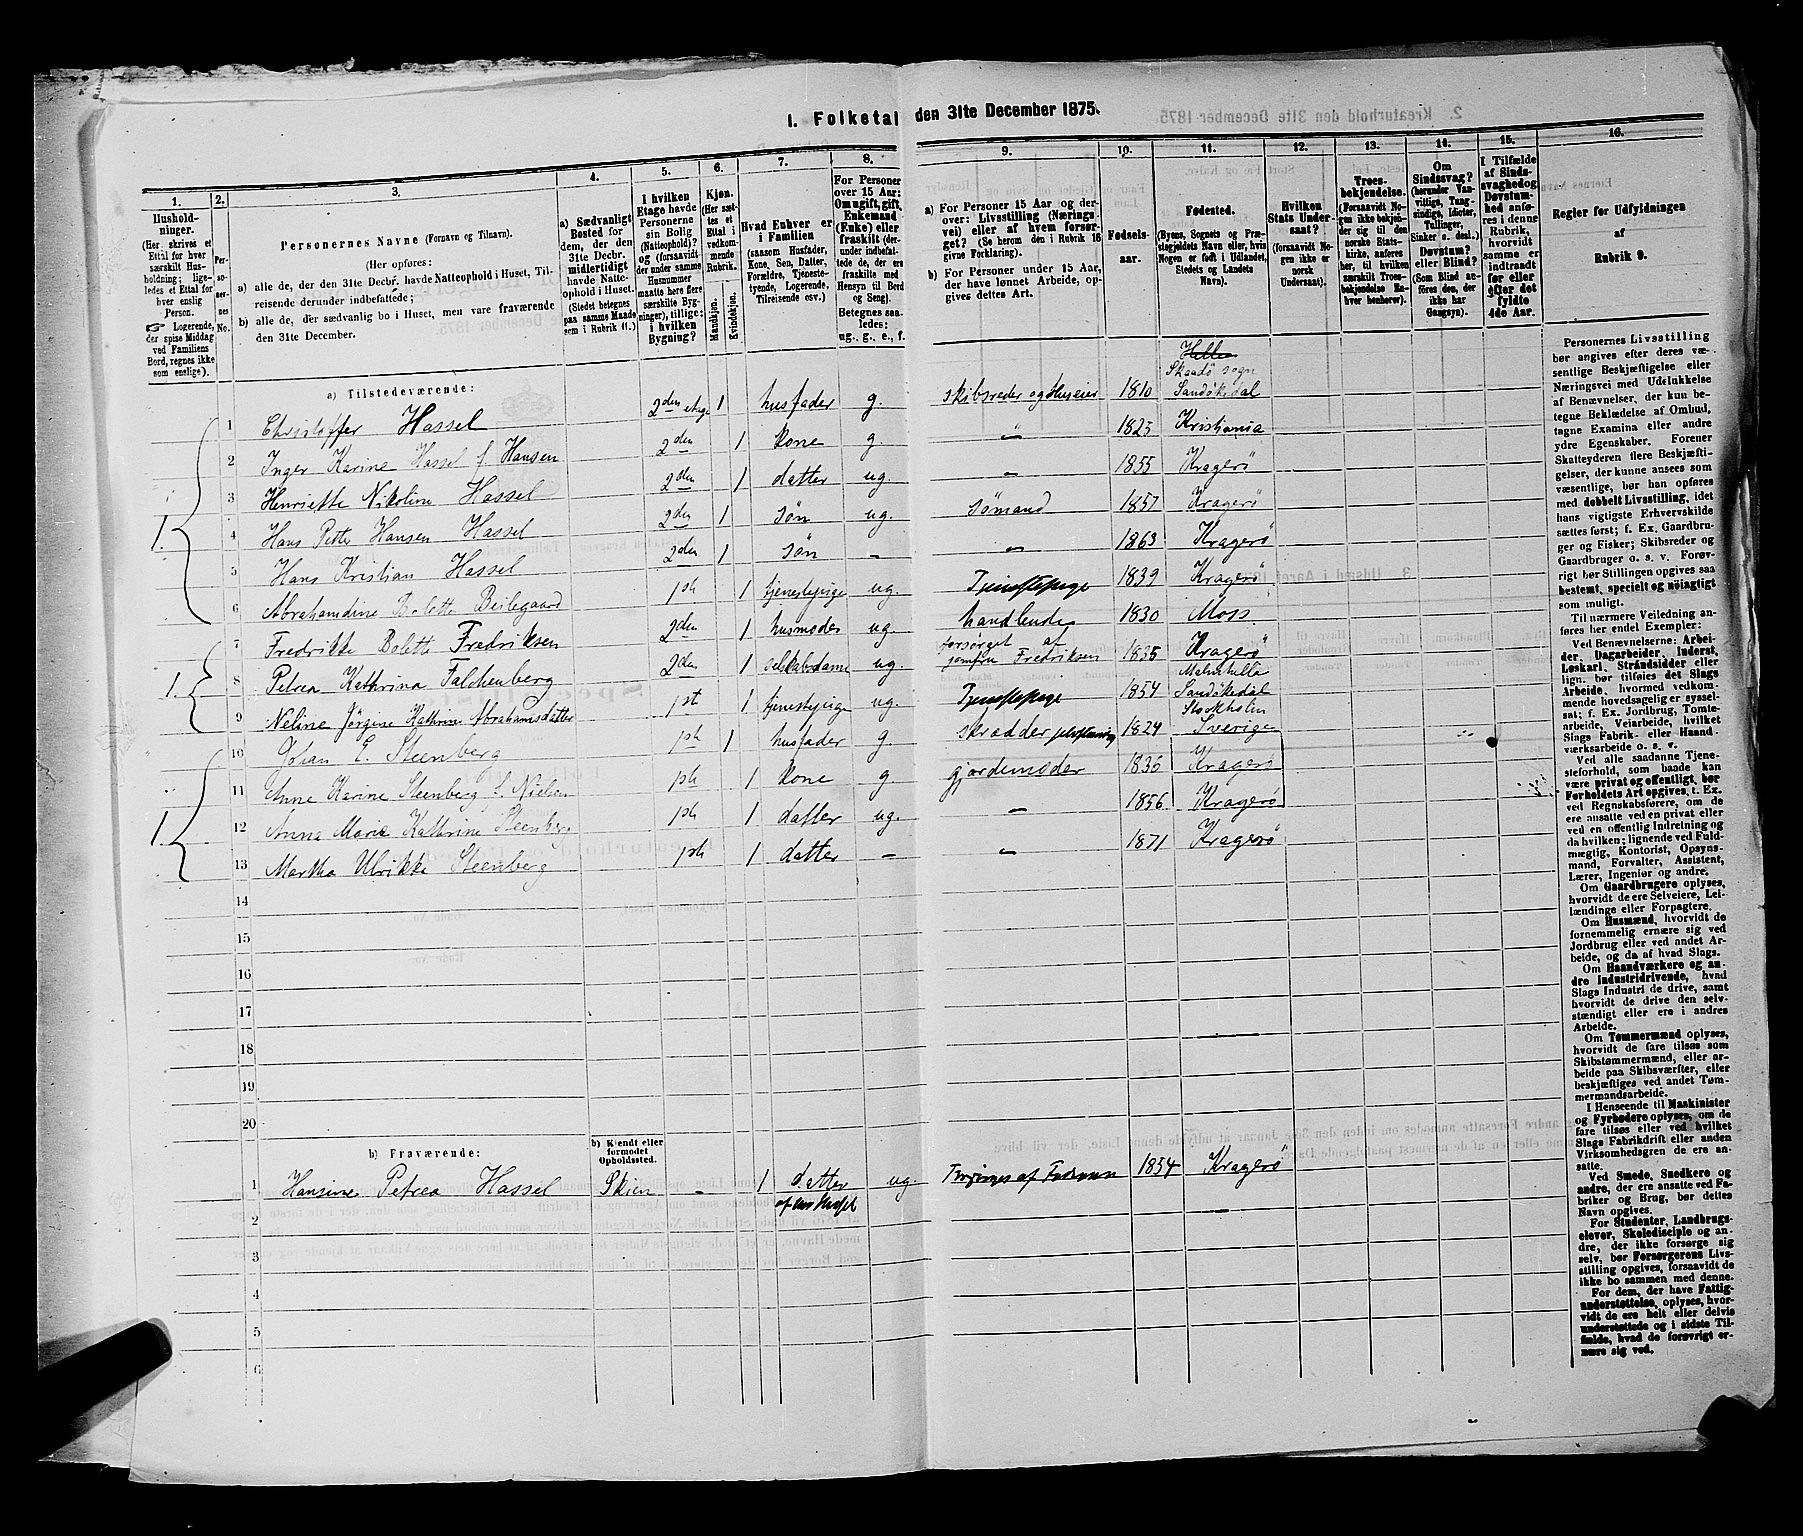 1. Folketal den 31te December 1875.
1.
Hushold-
ninger.
(Her skrives et
Ettal for hver
særskilt Hus-
holdning; lige-
ledes et Ettal for
hver enslig
Person.
☞ Logerende,
der spise Middag
ved Familiens
Bord, regnes ikke
som enslige).
2.
Per-
so-
ner-
nes
No.
3.
Personernes Navne (Fornavn og Tilnavn).
(Her opføres:
a) alle de, der den 31te Decbr. havde Natteophold i Huset, Til-
reisende derunder indbefattede;
b) alle de, der sædvanlig bo i Huset, men vare fraværende
den 31te December.
4.
a) Sædvanligt
Bosted for
dem, der den
31te Decbr.
midlertidigt
havde Natte-
ophold i Huset.
(Stedet betegnes
paa samme Maade
som i Rubrik 11.)
5.
I hvilken
Etage havde
Personerne
sin Bolig
(Natteophold)?
og (forsaavidt
der under samme
Husnummer
maatte høre flere
særskilte Byg-
ninger), tillige:
i hvilken
Bygning?
6.
Kjøn.
(Her sæt-
tes et
Ettal i
vedkom-
mende
Rubrik.
Mandkjøn.
Kvindekjøn.
7.
Hvad Enhver er
i Familien
(saasom Husfader,
Kone, Søn, Datter,
Forældre, Tjeneste-
tyende, Logerende,
Tilreisende osv.)
8.
For Personer
over 15 Aar:
Om ugift, gift,
Enkemand
(Enke) eller
fraskilt (der-
under indbefat-
tede de, der ere
fraskilte med
Hensyn til Bord
og Seng).
Betegnes saa-
ledes:
ug., g., e., f.
9.
a) For Personer 15 Aar og der-
over: Livsstilling (Nærings-
vei) eller af hvem forsør-
get? (Se herom den i Rubrik 16
givne Forklaring).
b) For Personer under 15 Aar,
der have lønnet Arbeide, op-
gives dettes Art.
10.
Fødsels-
aar.
11.
Fødested.
(Byens, Sognets og Præ-
stegjeldets Navn eller, hvis
Nogen er født i Udlandet,
Stedets og Landets
Navn).
12.
Hvilken
Stats Under-
saat?
(forsaavidt No-
gen ikke er
norsk
Undersaat).
13.
Troes-
bekjendelse.
(Forsaavidt No-
gen ikke bekjen-
der sig til den
norske Stats-
kirke, anføres
her, til hvilken
særskilt Troes-
bekjendelse En-
hver henhører).
14.
Om
Sindssvag?
(herunder Van-
vittige, Tung-
sindige, Idioter,
Tullinger,
Sinker o. desl.)
Døvstum?
eller Blind?
(Som Blind an-
føres den, der
ikke har
Gangsyn).
15.
I Tilfælde
af Sinds-
svaghed og
Døvstum-
hed anfø-
res i denne
Rubrik,
hvorvidt
samme er
indtraadt
før eller
efter det
fyldte
4de Aar.
16.
Regler for Udfyldningen
af
Rubrik 9.
a) Tilstedeværende:
1. 1 Christoffer Hassel 2den etage 1 husfader g. skibsreder og Huseier 1810 Helle Skaadø sogn Sandøkedal
2 Inger Karine Hassel f. Hansen 2den 1 kone g. " 1825 Kristiania
3 Henriette Nikoline Hassel 2den 1 datter ug. " 1855 Kragerö
4 Hans Petter Hansen Hassel 2den 1 sön ug. sömand 1857 Kragerö
5 Hans Kristian Hassel 2den 1 sön – " 1863 Kragerö
6 Abrahamdine Bolette Beilegaard 1st 1 tjenestepige ug. Tjenestepige 1839 Kragerö
1. 7 Fredrikke Bolette Fredriksen 2den 1 husmoder ug. handlende 1830 Moss.
8 Petrea Kathrina Falchenberg 2den 1 selskabsdame ug. forsörget af jomfru Fredriksen 1835 Kragerö
9 Neline Jörgine Kathrine Abrahamsdatter 1st 1 tjenestepige ug. Tjenestepige 1854 Sandökedal
1. 10 Johan E. Steenberg 1st 1 husfader g. skrædder 1824 Stockholm Sverige
11 Anne Karine Steenberg f. Nielsen 1st 1 kone g. gjordemoder 1836 Kragerö
12 Anna Marie Kathrine Steenberg 1st 1 datter ug. " 1856 Kragerö
13 Martha Ulrikke Steenberg 1st 1 datter – " 1871 Kragerö
14
15
16
17
18
19
20
b) Fraværende:
b) Kjendt eller
formodet
Opholdssted.
1 Hansine Petrea Hassel Skien – 1 datter ug. Forsörges af Faderen 1854 Kragerö
2
3
4
5
6
Personernes Livsstilling
bør angives efter deres væ-
sentlige Beskjæftigelse eller
Næringsvei med Udelukkelse
af Benævnelser, der kun be-
tegne Beklædelse af Ombud,
tagne Examina eller andre
ydre Egenskaber. Forener
Skatteyderen flere Beskjæfti-
gelser, der kunne ansees som
væsentlige, bør han opføres
med dobbelt Livsstilling, idet
hans vigtigste Erhvervskilde
sættes først; f. Ex. Gaardbru-
ger og Fisker; Skibsreder og
Gaardbruger o. s. v. Forøv-
rigt bør Stillingen opgives saa
bestemt, specielt og nøiagtigt
som muligt.
Til nærmere Veiledning an-
føres her endel Exempler:
Ved Benævnelserne: Arbei-
der, Dagarbeider, Inderst,
Løskarl, Strandsidder eller
lign. bør tilføies det Slags
Arbeide, hvormed vedkom-
mende hovedsagelig er syssel-
sat; f. Ex. Jordbrug, Tomte-
arbeide, Veiarbeide, hvilket
Slags Fabrik- eller Haand-
værksarbeide o. s. v.
Ved alle saadanne Tjene-
steforhold, som baade kan
være privat og offentligt, bør
Forholdets Art opgives, t. Ex.
ved Regnskabsførere, om de
ere ansatte ved en privat eller
ved en offentlig Indretning og
da hvilken; lignende ved Fuld-
mægtig, Kontorist, Opsyns-
mand, Forvalter, Assistent,
Lærer, Ingeniør og andre.
Om Gaardbrugere oplyses,
hvorvidt de ere Selveiere, Lei-
lændinge eller Forpagtere.
Om Husmænd, hvorvidt de
fornemmelig ernære sig ved
Jordbrug eller ved andet Ar-
beide, og da af hvad Slags.
Om Haandværkere og an-
dre Industridrivende, hvad
Slags Industri de drive, samt
hvorvidt de drive den selv-
stændigt eller ere i andres
Arbeide.
Om Tømmermænd oplyses,
hvorvidt de fare tilsøs som
Skibstømmermænd, eller ar-
beide paa Skibsværfter, eller
beskjæftiges ved andet Tøm-
mermandsarbeide.
I Henseende til Maskinister
og Fyrbødere oplyses, om de
fare tilsøs eller ved hvilket
Slags Fabrikdrift eller anden
Virksomhedsgren de ere an-
satte.
Ved Smede, Snedkere og
andre, der ere ansatte ved Fa-
briker og Brug, bør dettes
Navn opgives.
For Studenter, Landbrugs-
elever, Skoledisciple og an-
dre, der ikke forsørge sig
selv, bør Forsørgerens Livs-
stilling opgives, forsaavidt de
ikke bo sammen med denne.
For dem, der have Fattig-
understøttelse, oplyses, hvor-
vidt de ere helt eller delvis
understøttede og i sidste Til-
fælde, hvad de forøvrigt er-
nære sig ved.